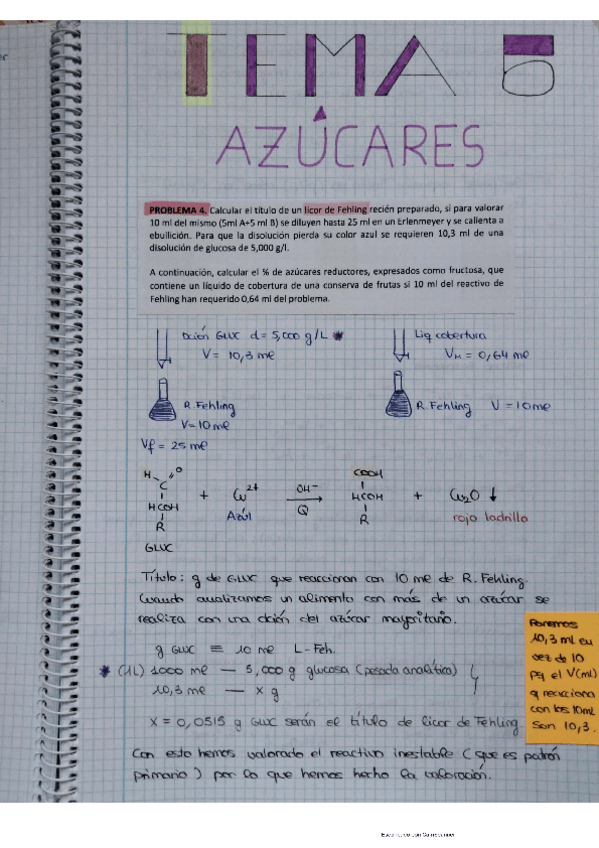 TEMA 5
AZÚCARES
PROBLEMA 4. Calcular el título de un licor de Fehling recién preparado, si para valorar
10 ml del mismo (5ml A+5 ml B) se diluyen hasta 25 ml en un Erlenmeyer y se calienta a
ebullición. Para que la disolución pierda su color azul se requieren 10,3 ml de una
disolución de glucosa de 5,000 g/l.
A continuación, calcular el % de azúcares reductores, expresados como fructosa, que
contiene un líquido de cobertura de una conserva de frutas si 10 ml del reactivo de
Fehling han requerido 0,64 ml del problema.
Dción GLUC d = 5,000 g/L *
V = 10,3 ml
R. Fehling
V = 10 ml
Vf = 25 ml
Liq cobertura
VM = 0,64 ml
R. Fehling V = 10 ml
H O
C
HCOH
R
GLUC
+ Cu2+
Azúl
OH-
Q
COOH
HCOH
R
+ Cu2O ↓
rojo ladrillo
Título: g de GLUC que reaccionan con 10 ml de R. Fehling.
Cuando analizamos un alimento con más de un azúcar se
realiza con una dción del azúcar mayoritario.
g GLUC ≡ 10 ml L-Feh.
* (1L) 1000 ml — 5,000 g glucosa (pesada analítica)
10,3 ml — x g
X = 0,0515 g GLUC serán el título de licor de Fehling.
Con esto hemos valorado el reactivo inestable (que es patrón
primario) por lo que hemos hecho la valoración.
Ponemos
10,3 ml en
vez de 10
pq el V(ml)
q reacciona
con los 10ml
son 10,3.